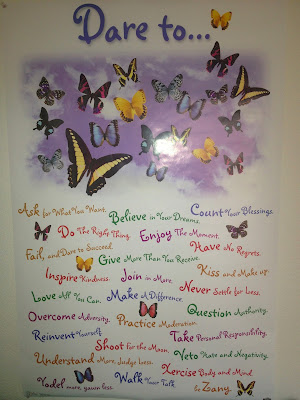 Dare to...
Ask for What You Want. Believe in Your Dreams. Count Your Blessings.
Do The Right Thing. Enjoy The Moment.
Fail, and Dare to Succeed. Give More Than You Receive. Have No Regrets.
Inspire Kindness. Join in More. Kiss and Make up.
Love All You Can. Make A Difference. Never Settle for Less.
Overcome Adversity. Practice Moderation. Question Authority.
Reinvent Yourself. Shoot for the Moon. Take Personal Responsibility.
Understand More, Judge Less. Veto Hate and Negativity.
Yodel more, yawn less. Walk Your Talk. Xercise Body and Mind.
Be Zany.